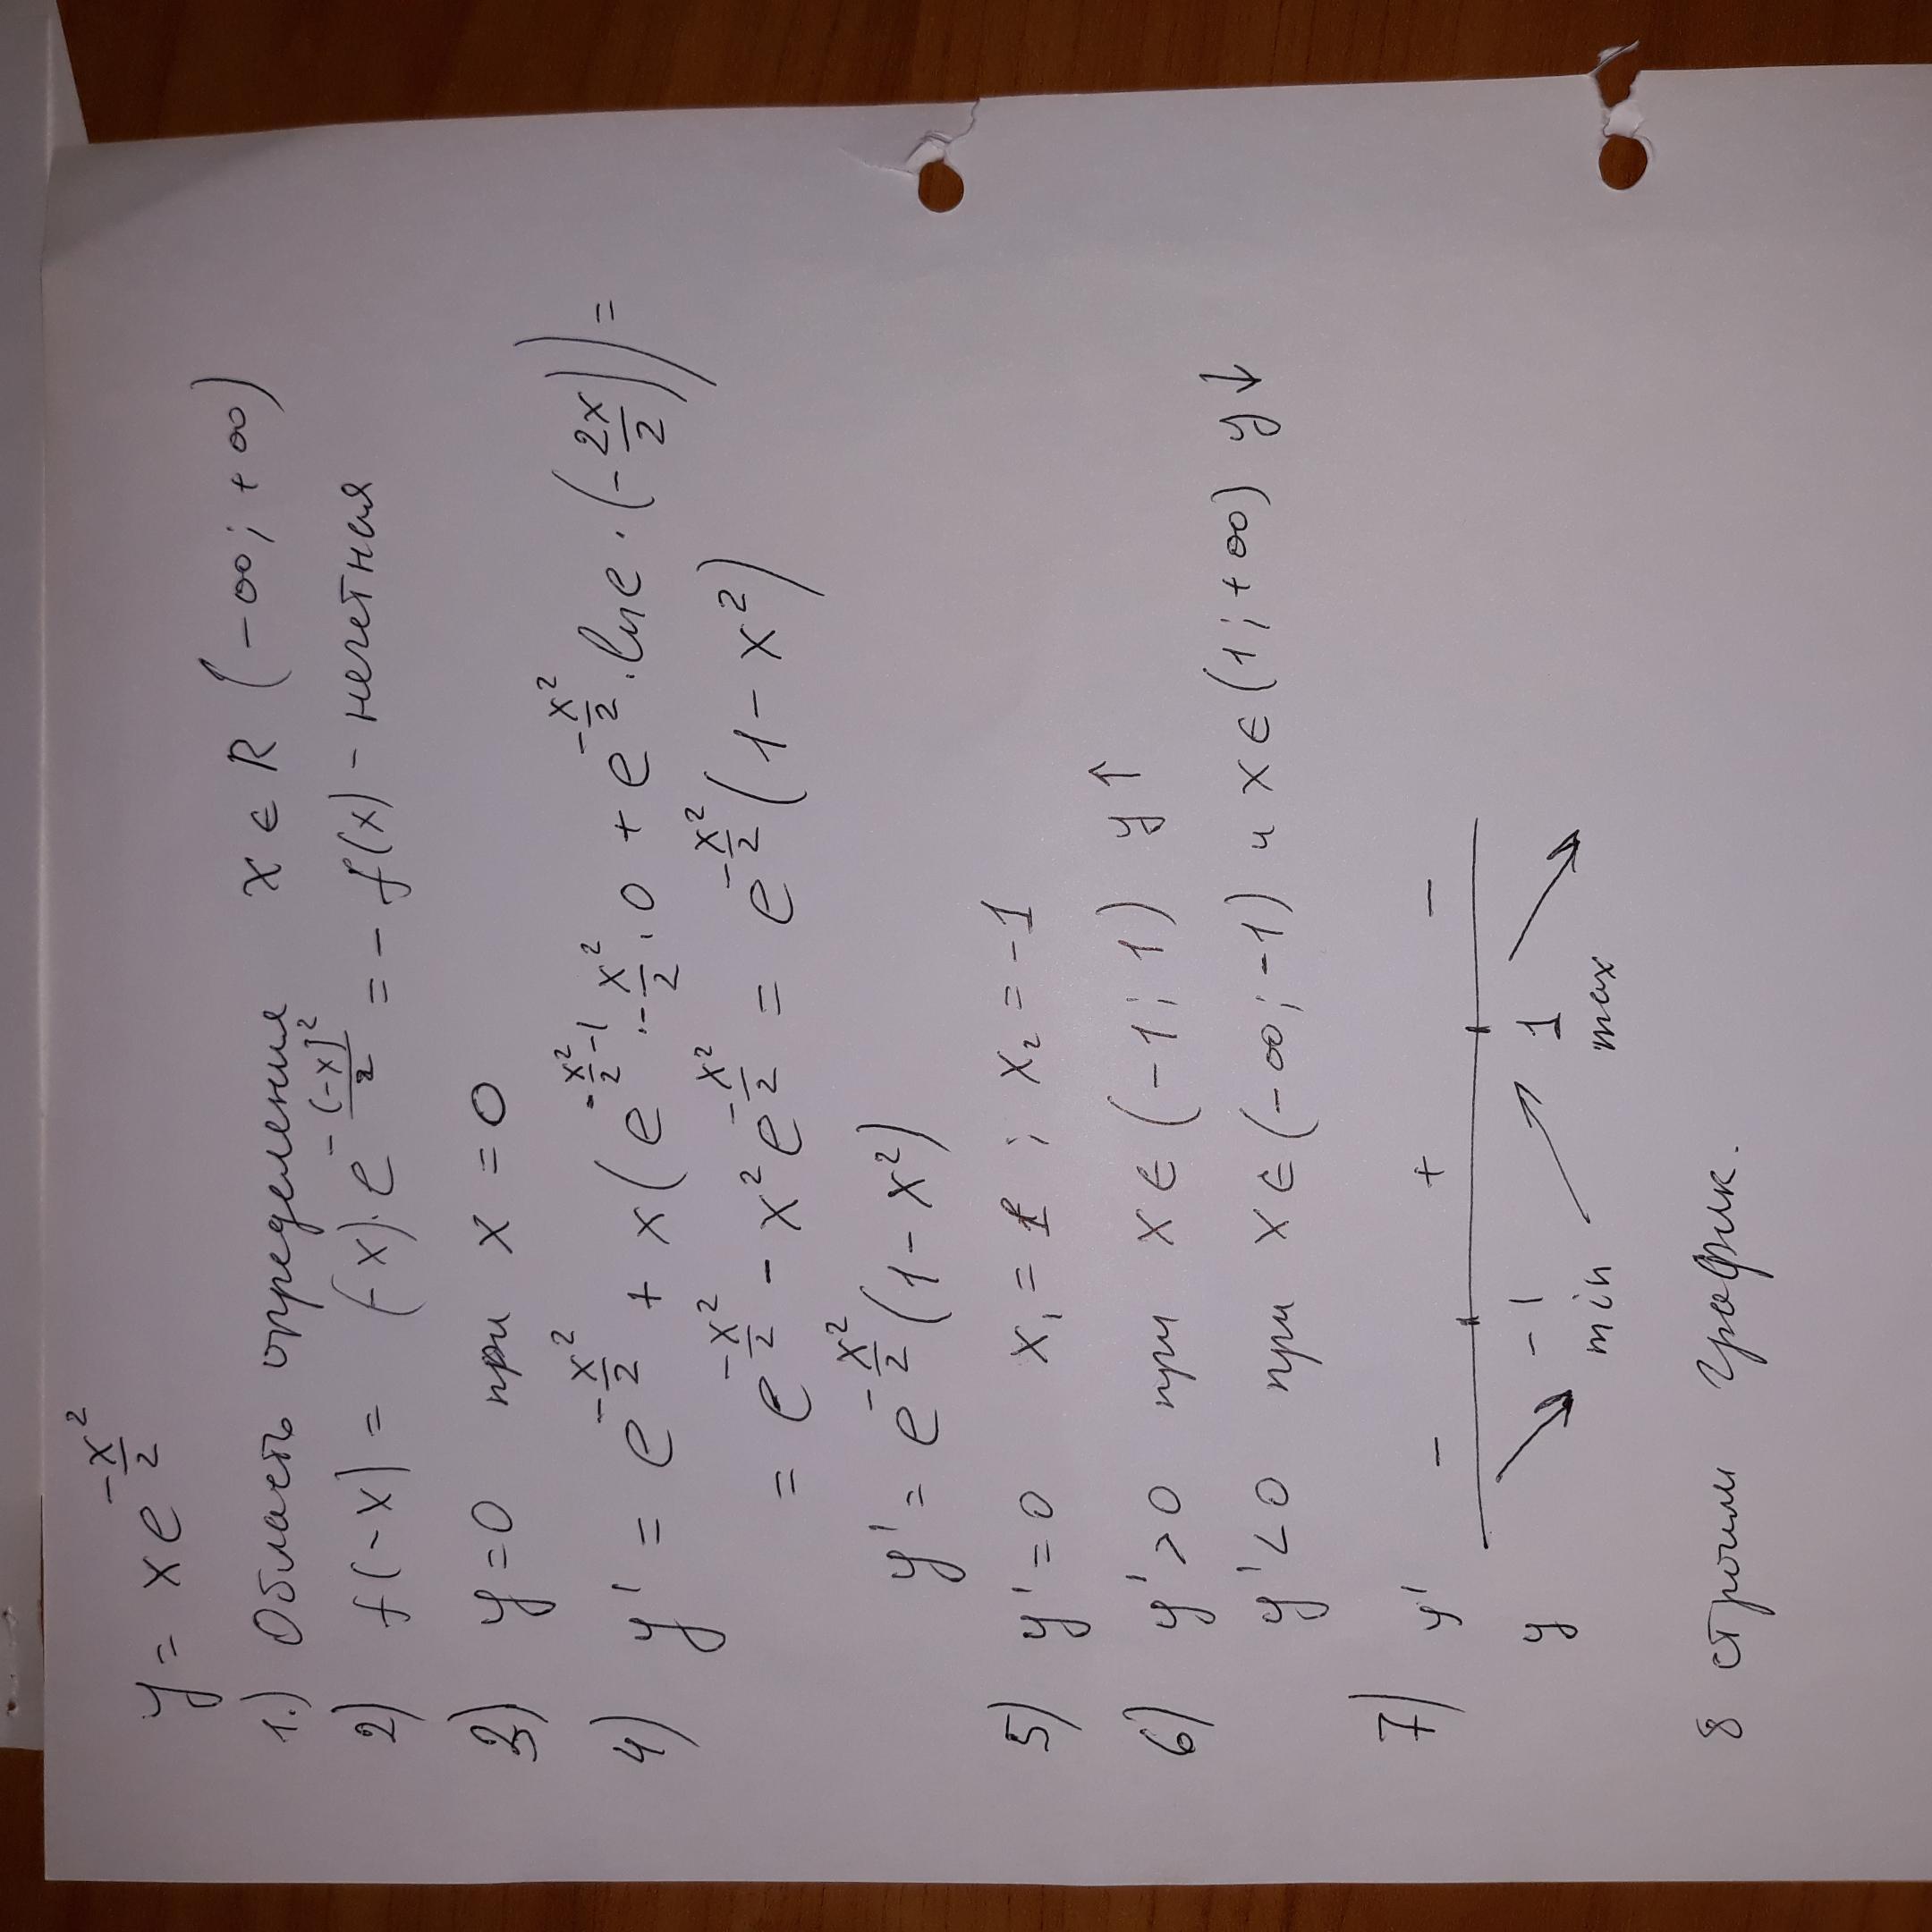 y = xe^{-\frac{x^2}{2}}
1.) Область определения x ∈ R (-∞; +∞)
2) f(-x) = (-x)·e^{-\frac{(-x)^2}{2}} = -f(x) - нечетная
3) y=0 при x=0
4) y' = e^{-\frac{x^2}{2}} + x(e^{-\frac{x^2}{2}-1}·-\frac{x^2}{2}·0 + e^{-\frac{x^2}{2}}·lne·(-\frac{2x}{2})) =
= e^{-\frac{x^2}{2}} - x^2e^{-\frac{x^2}{2}} = e^{-\frac{x^2}{2}}(1-x^2)
y' = e^{-\frac{x^2}{2}}(1-x^2)
5) y'=0 x₁=1; x₂=-1
6) y'>0 при x∈(-1;1) y↑
y'<0 при x∈(-∞;-1) и x∈(1;+∞) y↓
7) y' - + -
y ↘ -1 ↗ 1 ↘
min max
8 строим график.